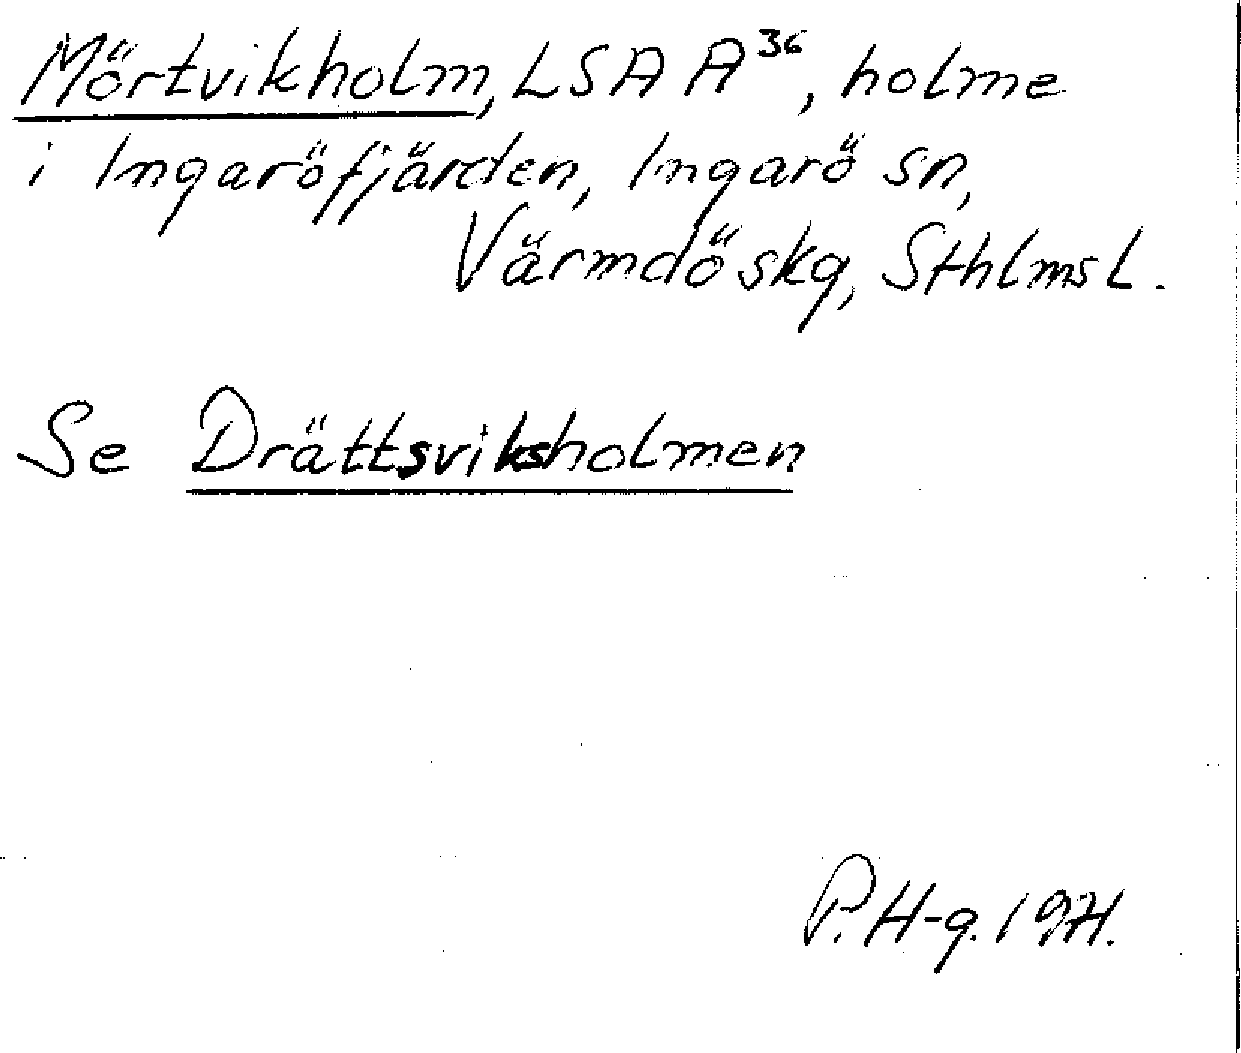 Mörtvikholm, LSA A³⁶, holme
i Ingaröfjärden, Ingarö sn,
Värmdö skg, Sthlms L.
Se Drättsviksholmen
P. H-g. 1971.